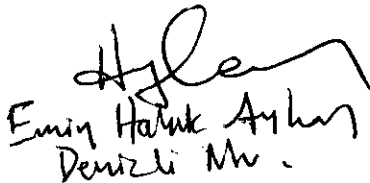 Emin Haluk Ayhan
Denizli Mv.